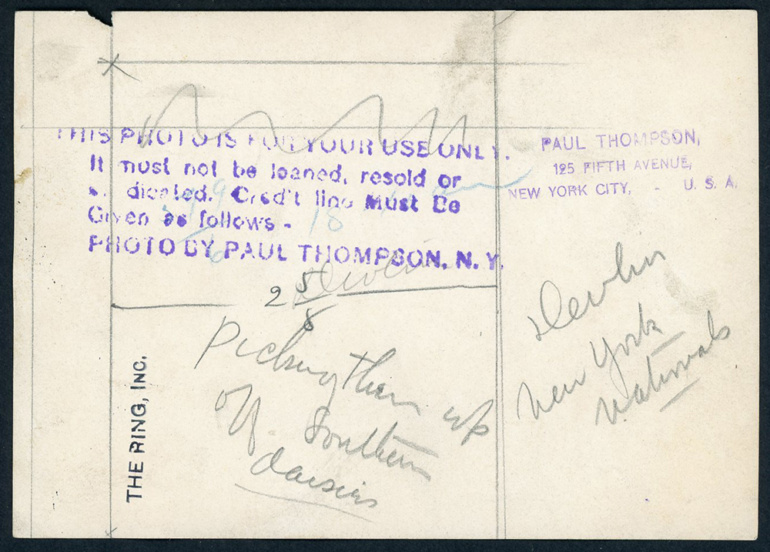 THIS PHOTO IS FOR YOUR USE ONLY.
It must not be loaned, resold or
Credit line Must Be
Given as follows -
PHOTO BY PAUL THOMPSON, N. Y.
PAUL THOMPSON,
125 FIFTH AVENUE,
NEW YORK CITY, - U. S. A.
2 5/8
Devlin
New York
Nationals
Picking them up
off Southern
daisies
THE RING, INC.